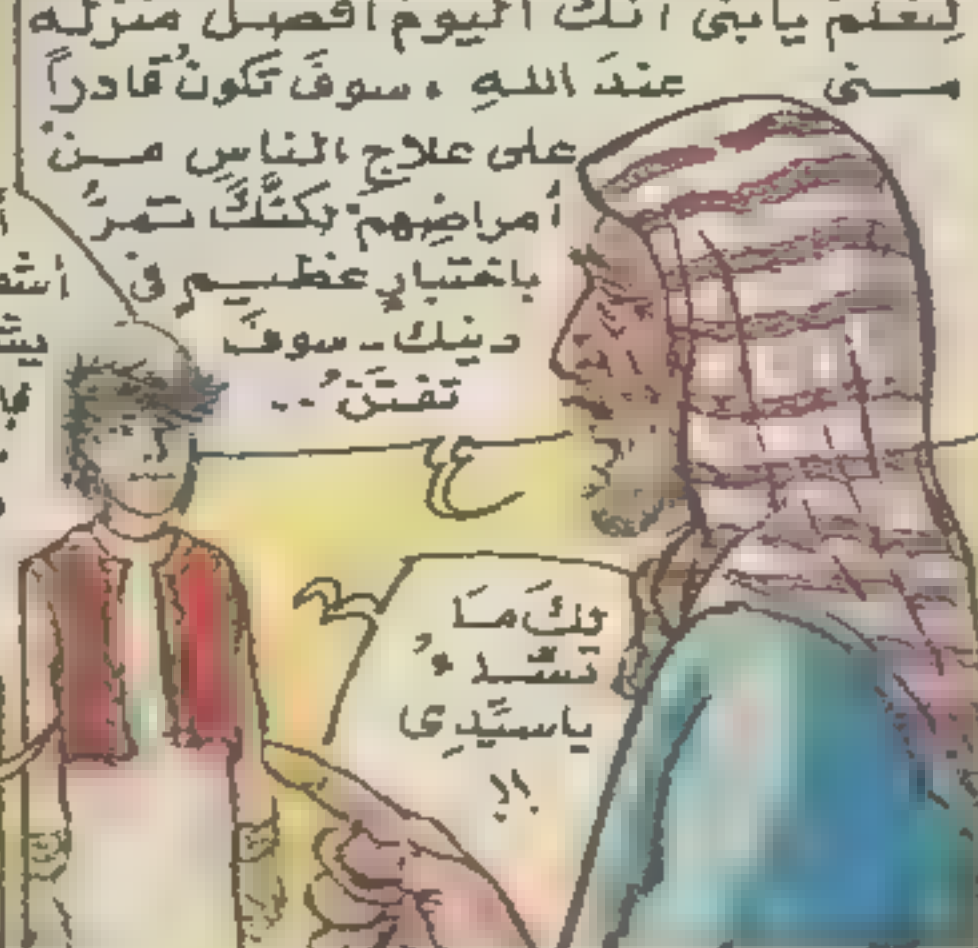 لِتَعْلَمْ يابنى أنك اليوم أفضل منزلة
منى عندَ اللهِ ، سوفَ تَكونُ قادراً
على علاجِ الناسِ مِنْ
أمراضِهِمْ لكنَّكَ تمرُّ
باختبارٍ عظيمٍ فى
دينك .. سوفَ
تفتَنُ ..
لكَ مَا
ياسيّدِى
!!